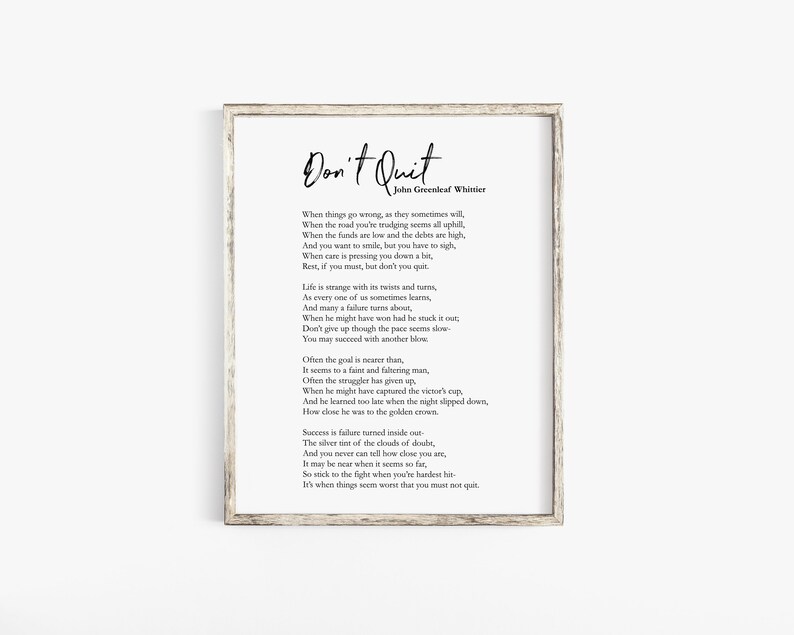 Don't Quit
John Greenleaf Whittier
When things go wrong, as they sometimes will,
When the road you're trudging seems all uphill,
When the funds are low and the debts are high,
And you want to smile, but you have to sigh,
When care is pressing you down a bit,
Rest, if you must, but don't you quit.
Life is strange with its twists and turns,
As every one of us sometimes learns,
And many a failure turns about,
When he might have won had he stuck it out;
Don't give up though the pace seems slow-
You may succeed with another blow.
Often the goal is nearer than,
It seems to a faint and faltering man,
Often the struggler has given up,
When he might have captured the victor's cup,
And he learned too late when the night slipped down,
How close he was to the golden crown.
Success is failure turned inside out-
The silver tint of the clouds of doubt,
And you never can tell how close you are,
It may be near when it seems so far,
So stick to the fight when you're hardest hit-
It's when things seem worst that you must not quit.